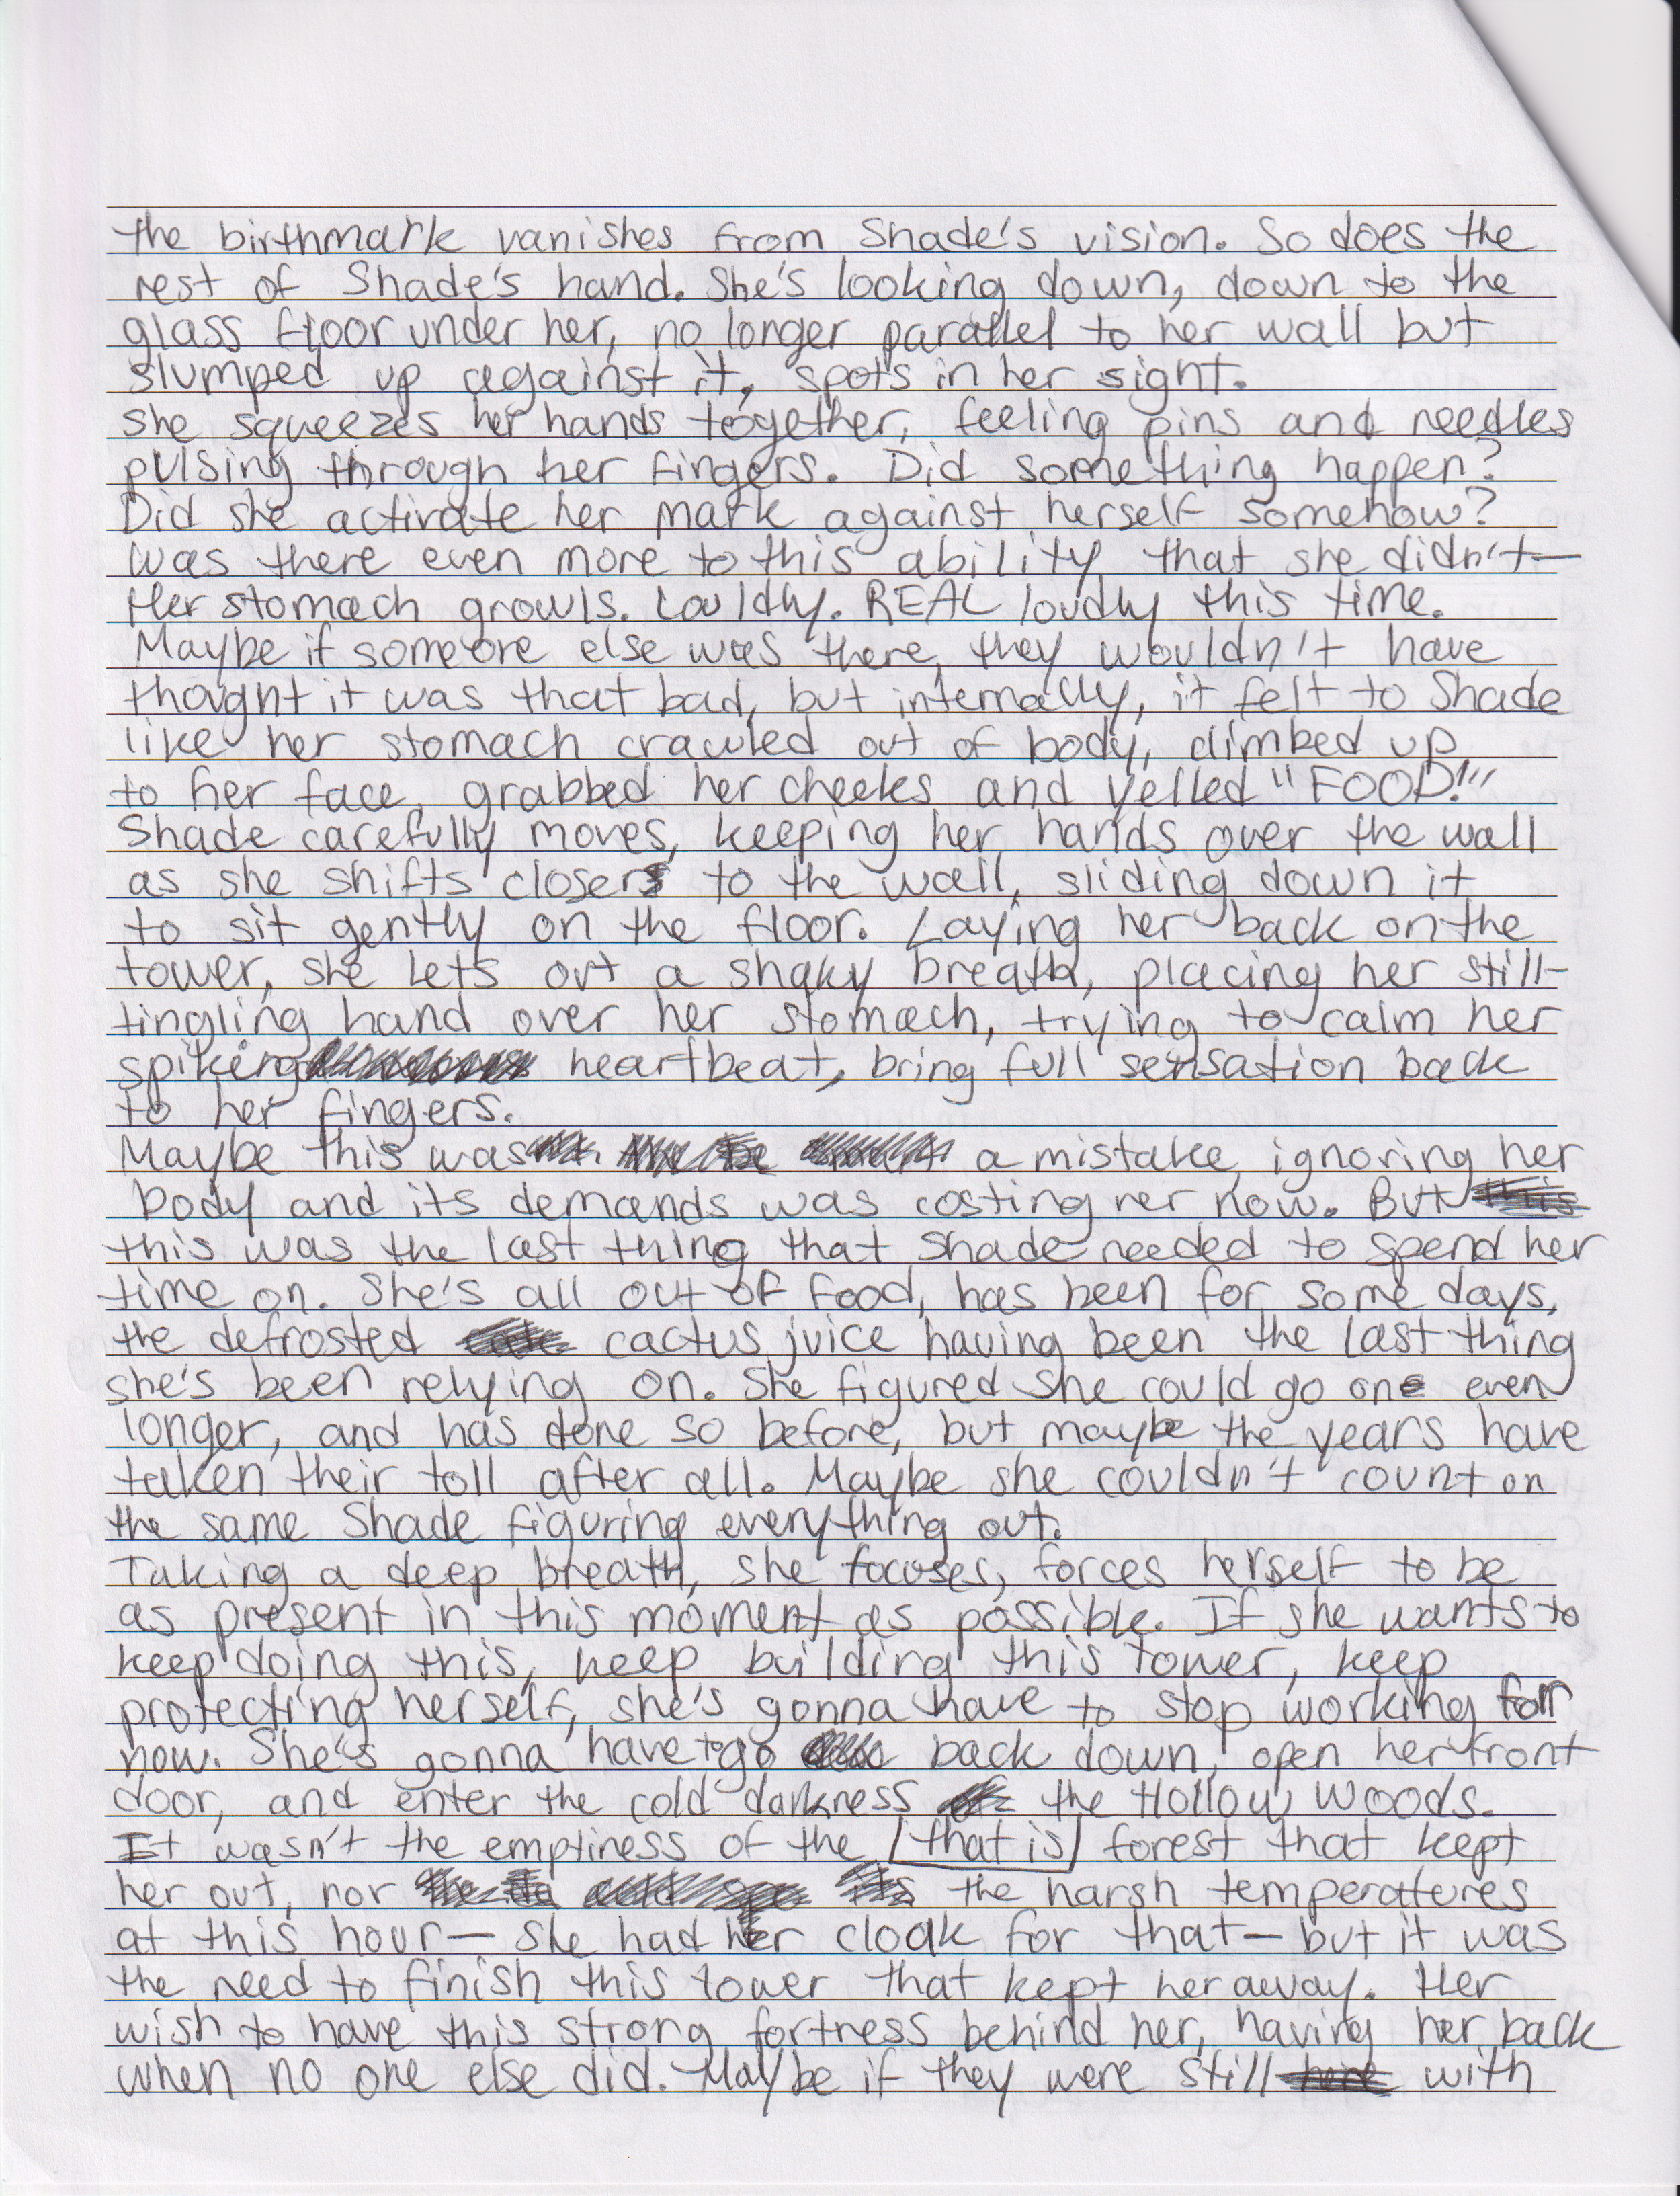 the birthmark vanishes from Shade's vision. So does the
rest of Shade's hand. She's looking down, down to the
glass floor under her, no longer parallel to her wall but
slumped up against it, spots in her sight.
she squeezes her hands together, feeling pins and needles
pulsing through her fingers. Did something happen?
Did she activate her mark against herself somehow?
Was there even more to this ability that she didn't—
Her stomach growls. Louldly. REAL loudly this time.
Maybe if someone else was there, they wouldn't have
thought it was that bad, but internally, it felt to Shade
like her stomach crawled out of body, climbed up
to her face, grabbed her cheeks and yelled "FOOD!"
Shade carefully moves, keeping her hands over the wall
as she shifts closer to the wall, sliding down it
to sit gently on the floor. Laying her back on the
tower, she lets out a shaky breath, placing her still-
tingling hand over her stomach, trying to calm her
spiking heartbeat, bring full sensation back
to her fingers.
Maybe this was a mistake, ignoring her
body and its demands was costing her now. But
this was the last thing that Shade needed to spend her
time on. She's all out of food, has been for some days,
the defrosted cactus juice having been the last thing
she's been relying on. She figured she could go one even
longer, and has done so before, but maybe the years have
taken their toll after all. Maybe she couldn't count on
the same Shade figuring everything out.
Taking a deep breath, she focuses, forces herself to be
as present in this moment as possible. If she wants to
keep doing this, keep building this tower, keep
protecting herself, she's gonna have to stop working for
now. She's gonna have to go back down, open her front
door, and enter the cold darkness the Hollow Woods.
It wasn't the emptiness of the that is forest that kept
her out, nor the harsh temperatures
at this hour— she had her cloak for that— but it was
the need to finish this tower that kept her away. Her
wish to have this strong fortress behind her, having her back
when no one else did. Maybe if they were still with